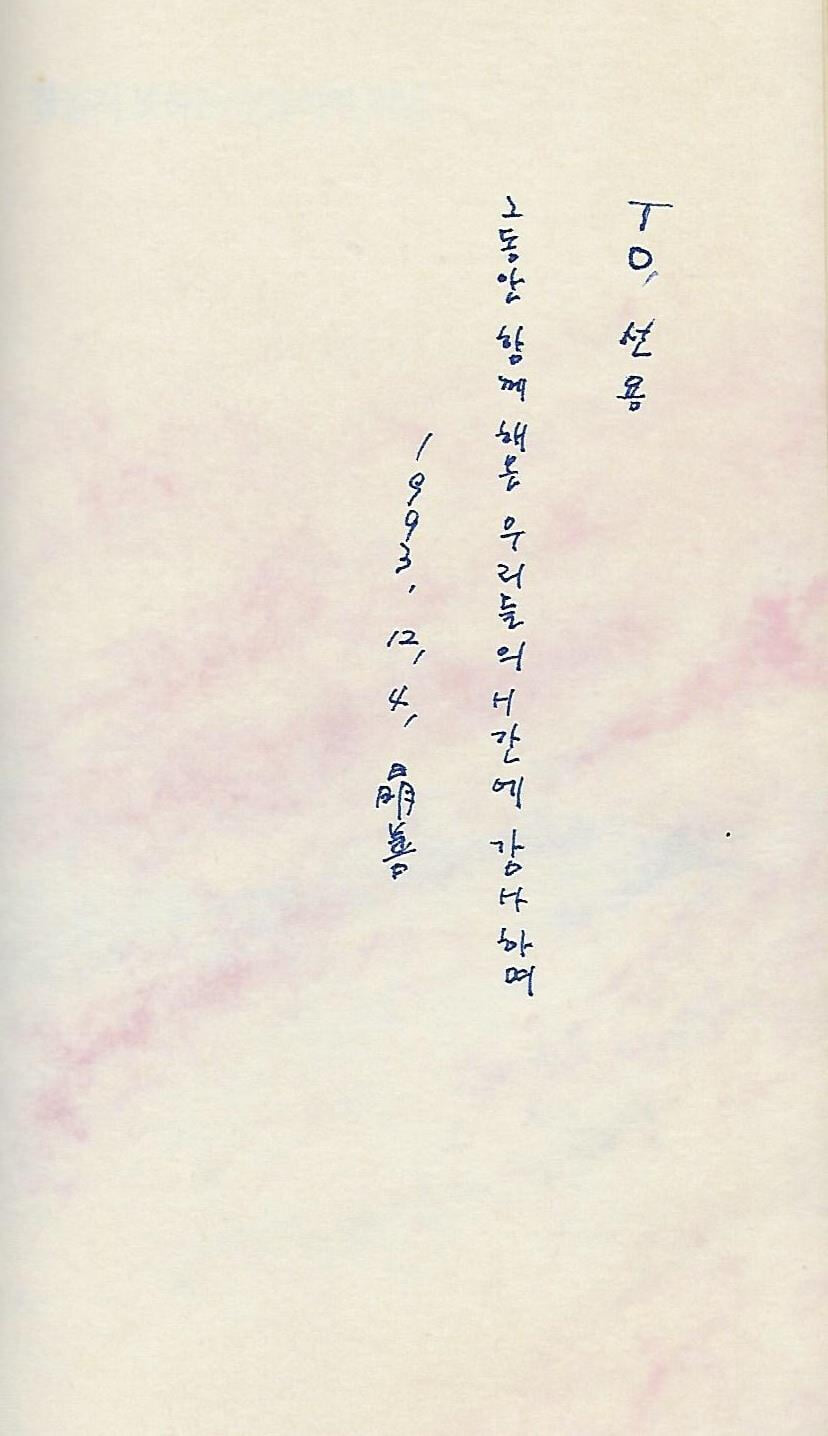 TO, 선용
그동안 함께 해온 우리들의 시간에 감사하며
1993, 12, 4,